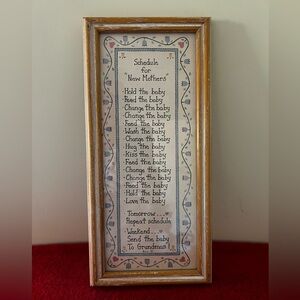 Schedule
for
"New Mothers"
·Hold the baby
·Feed the baby
·Change the baby
·Change the baby
·Feed the baby
·Wash the baby
·Change the baby
·Hug the baby
·Kiss the baby
·Feed the baby
·Change the baby
·Change the baby
·Feed the baby
·Hold the baby
·Love the baby
Tomorrow...
Repeat schedule
Weekend...
Send the baby
To Grandmas!